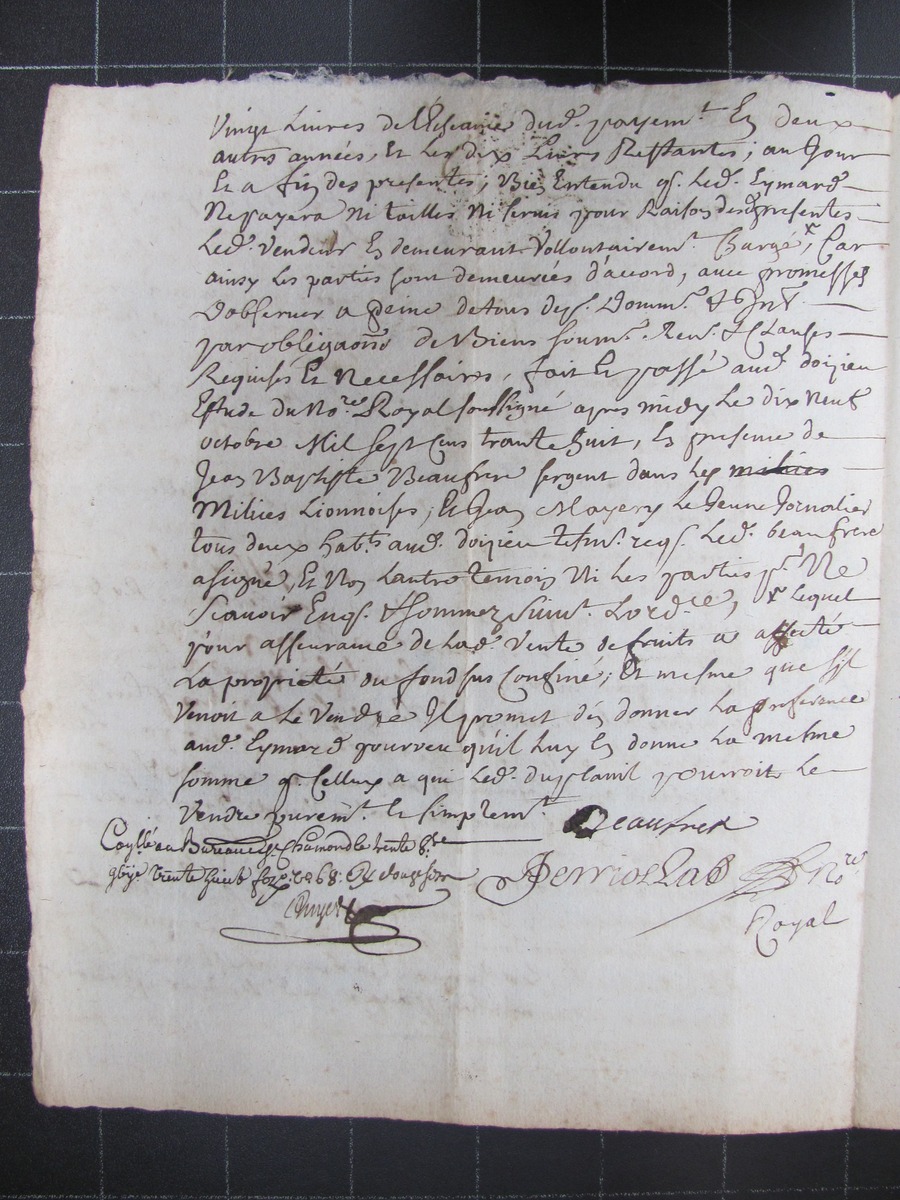 Vingt Livres de l'Escance dud. payemt. En deux
autres années, Et Les dix Livres Restantes, au Jour
Et a fin des presentes; Bien Entendu q. Led. Eymard
Ne payera Ni tailles Ni servis pour Raison des presentes
Led. Vendeur En demeurant Vollontairemt. Chargé, Car
ainsy Les parties sont demeurées d'accord, avec promesses
D'observer a peine de tous dep. Domm. &
par obligaons de Biens soum. Ren. & Clauses
Requises Et Necessaires, fait Et passé aud. doizieu
Estude du No.re Royal soussigné apres midy Le dix Neuf
octobre Mil sept Cens trante huit, En presence de
Jean Baptiste Beaufrere sergent dans Les milices
Milices Lionnoises, Et Jean Mayery Le Jeune Jornalier
tous deux habts. aud. doizieu tesm. req. Led. beaufrere
a signé, Et Non Lautre temoin Ni Les parties pr. Ne
scavoir Enq. & sommez suivt. Lord.ce, Lequel
pour asseurance de Lad. Vente de fruits a affecté
La proprieté du fond sus Confiné; Et mesme que s'il
Venoit a Le Vendre Il promet d'en donner La preferance
aud. Eymard pourveu qu'il Luy En donne La mesme
somme q. Celluy a qui Led. duplanil pourroit Le
Vendre puremt. Et simplemt.
Beaufrere
Conllé au Bureau de St Chamond le trente 8.re
trente huit
No.re
Royal